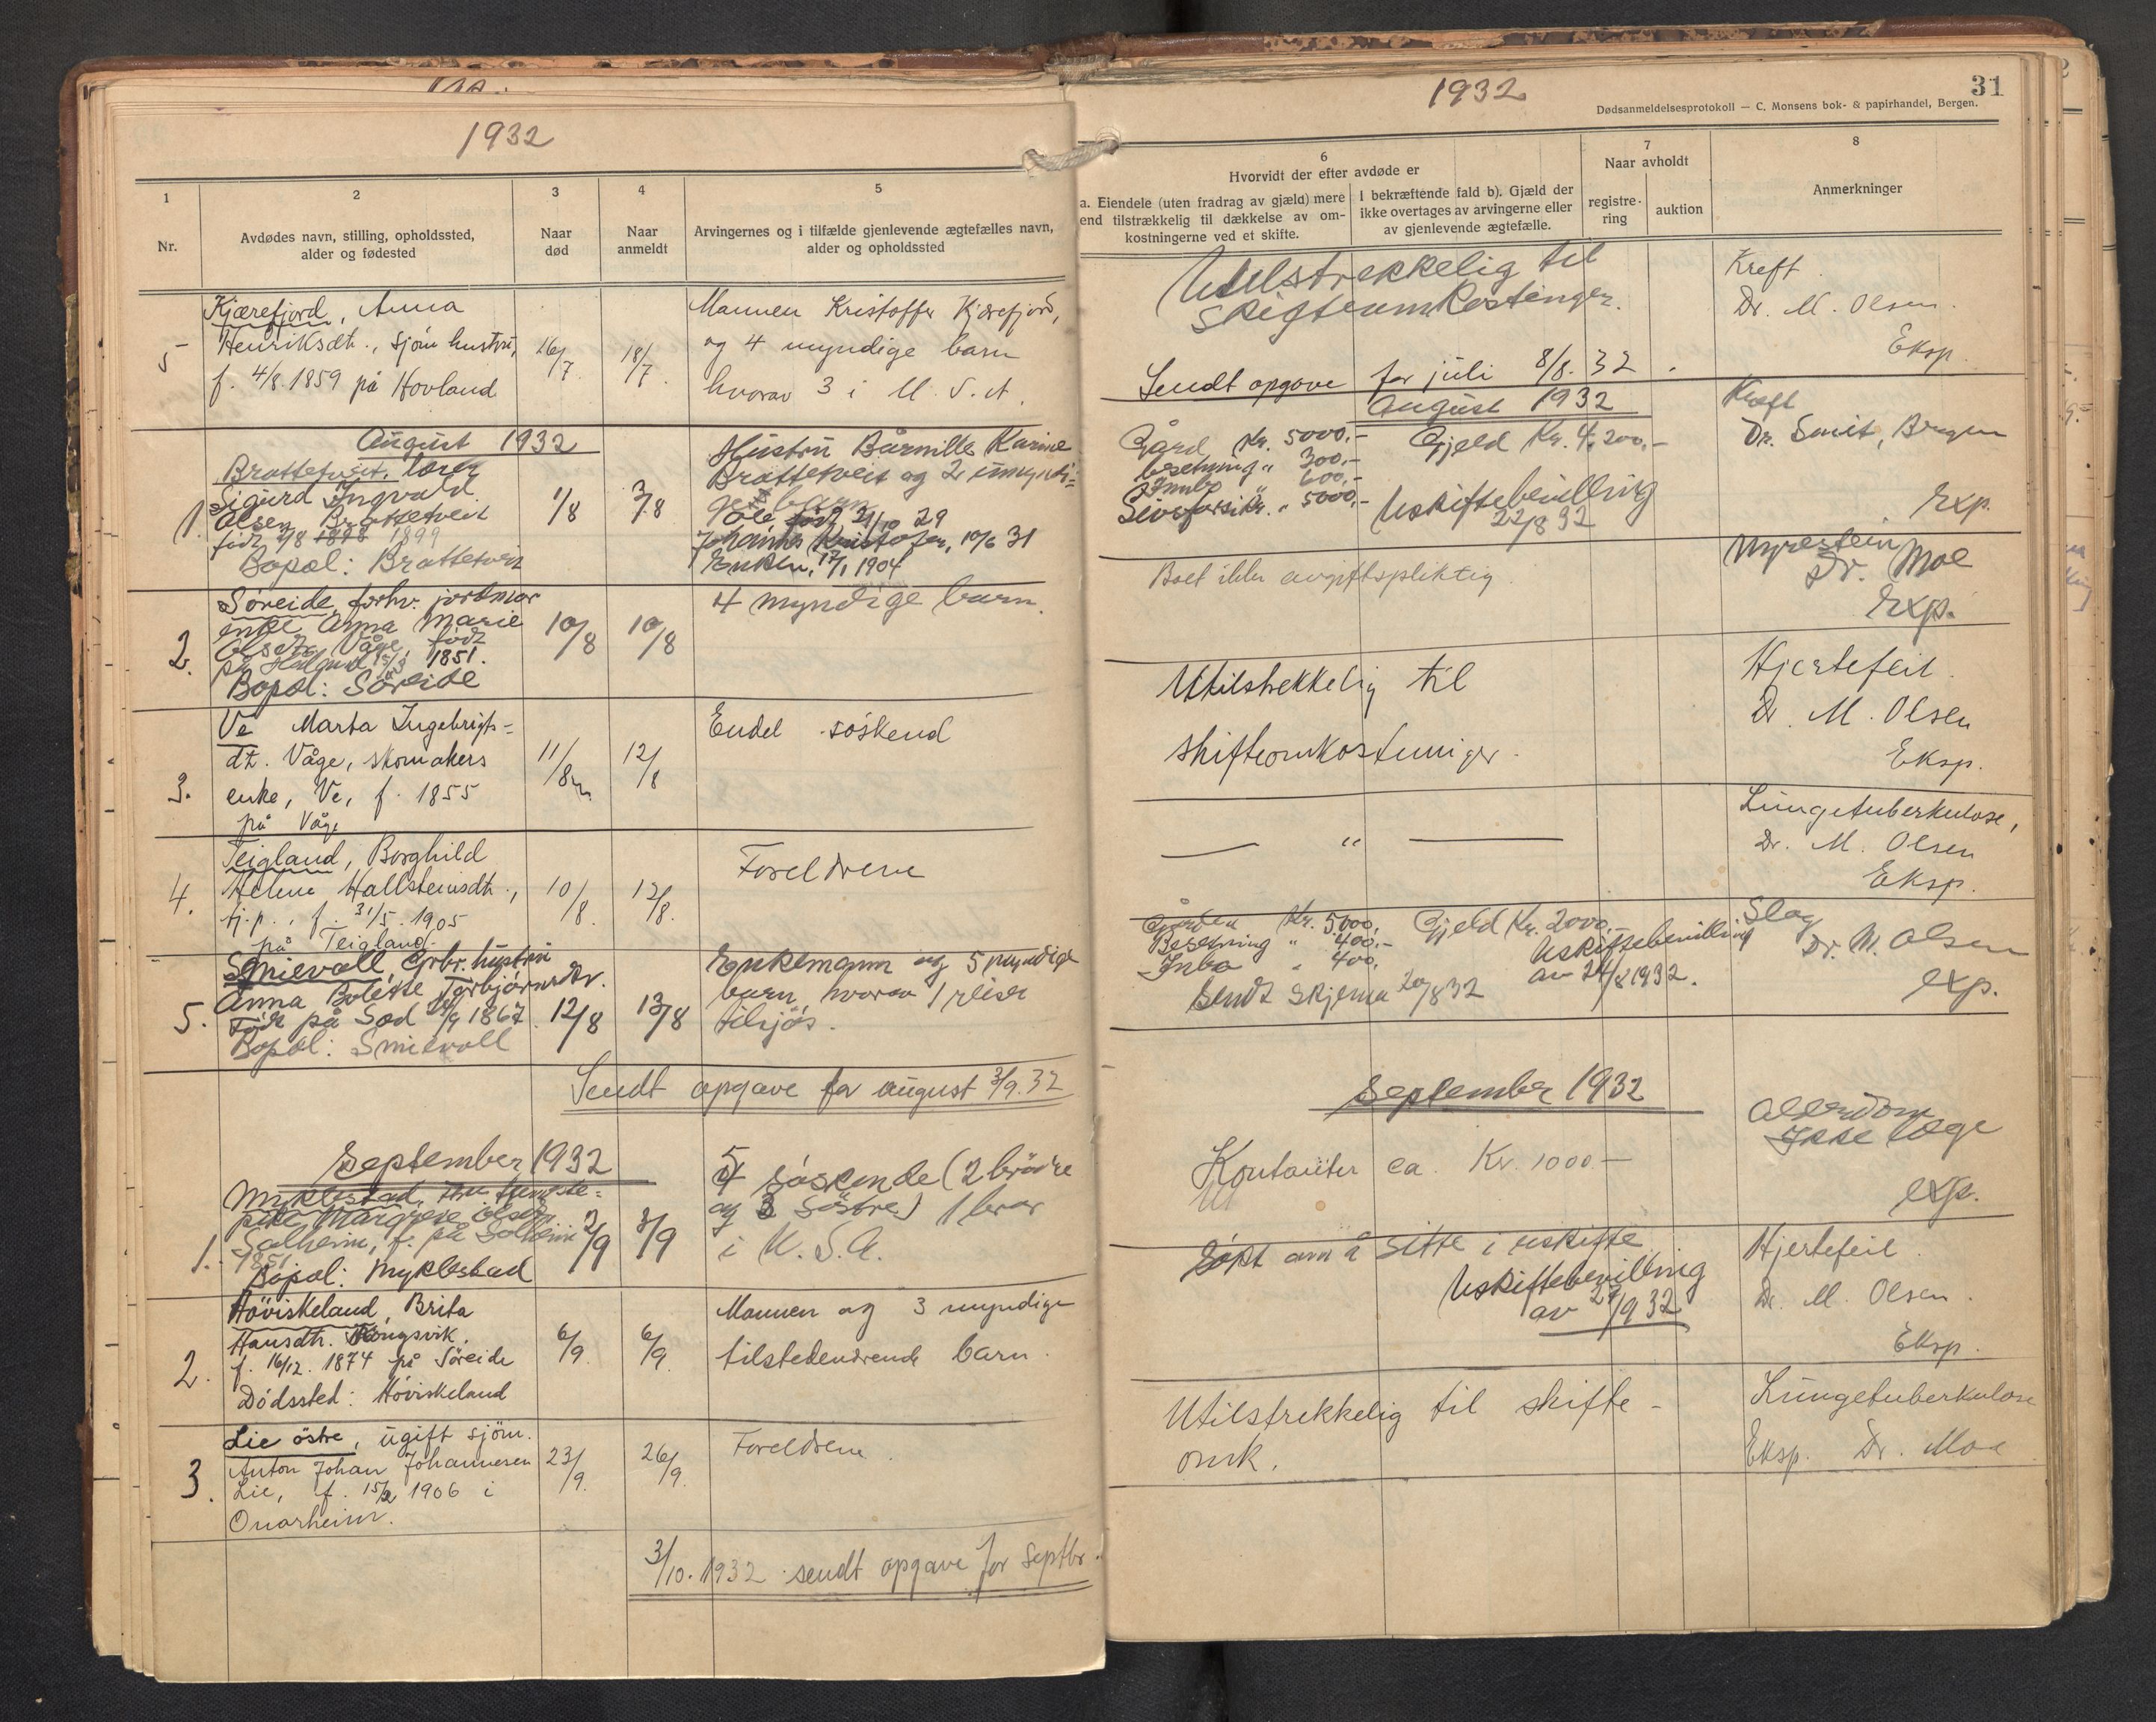 1932
1
2
3
4
5
Nr.
Avdødes navn, stilling, opholdssted,
alder og fødested
Naar
død
Naar
anmeldt
Arvingernes og i tilfælde gjenlevende ægtefælles navn,
alder og opholdssted
5
Kjærefjord, Anna
Henriksdtr., sjøm. hustru,
f. 4/8 1859 på Hovland
16/7.
18/7.
Mannen Kristoffer Kjærefjord,
og 4 myndige barn
hvorav 3 i U.S.A.
August 1932
1.
Brattetveit, lærer
Sigurd Ingvald
Olsen Brattetveit
født 2/8 1898 1899
Bopæl: Brattetveit
1/8
3/8
Hustru Bårnille Karine
Brattetveit og 2 umyndi-
ge barn
Ole, født 21/10 29
Johannes Kristofer, 10/6 31
Enken, 17/1 1904
2.
Søreide, forhv. jordmor
enke Anna Marie
Olsdtr. Våge, født
1851.
Bopæl: Søreide
10/8
10/8
4 myndige barn.
3.
Ve Marta Ingebrigts-
dt. Våge, skomakers
enke, Ve, f. 1855
på Våge
11/8
12/8
Endel søskend
4.
Teigland, Borghild
Helene Hallsteinsdtr.,
tj.p., f. 31/5 1905
på Teigland.
10/8.
12/8.
Foreldrene
5.
Smievoll, Grbr. hustru
Anna Bolette Torbjørnsdtr.
Født på Sod /9 1867.
Bopæl: Smievoll
12/8
13/8
Enkemann og 5 myndige
barn, hvorav 1 reiser
tilsjøs.
Sendt opgave for august 3/9.32
September 1932
1.
Myklestad, fhv. tjeneste-
pike Margrete Olsdtr.
Solheim, f. på Solheim
1851
Bopæl: Myklestad
2/9
3/9
5 søskende (2 brødre
og 3 søstre) 1 bror
i U.S.A.
2.
Høviskeland, Brita
Hansdtr. Kongsvik.
f. 16/12. 1874 på Søreide
Dødssted: Høviskeland
6/9.
6/9.
Mannen og 3 myndige
tilstedeværende barn.
3.
Lie østre, ugift sjøm.
Anton Johan Johannesen
Lie, f. 15/2 1906 i
Onarheim.
23/9.
26/9.
Foreldrene.
3/10. 1932 sendt opgave for Septbr.
1932
31
Dødsanmeldelsesprotokoll — C. Monsens bok- & papirhandel, Bergen.
6
Hvorvidt der efter avdøde er
a. Eiendele (uten fradrag av gjæld) mere
end tilstrækkelig til dækkelse av om-
kostningerne ved et skifte.
I bekræftende fald b). Gjæld der
ikke overtages av arvingerne eller
av gjenlevende ægtefælle.
7
Naar avholdt
registre-
ring
auktion
8
Anmerkninger
Utilstrekkelig til
skifteomkostninger.
Kreft.
Dr. M. Olsen.
Eksp.
Sendt opgave for juli 8/8. 32.
August 1932
Gård Kr. 5000,-
besetning " 300,-
Innbo " 600,-
Livsforsikr. " 5000,-
Gjeld Kr. 4.200,-
Uskiftebevilling
22/8 32
Kreft
Dr. Smit, Bergen
Exp.
Boet ikke avgiftspliktig.
Nyrestein
Dr. Moe
Exp.
Utilstrekkelig til
skifteomkostninger.
Hjertefeil.
Dr. M. Olsen
Eksp.
— " —
Lungetuberkulose,
Dr. M. Olsen
Eksp.
Gården Kr. 5.000,
Besetning " 400,-
Inbo " 400,
Gjeld Kr. 2000,-
Uskiftebevilling
av 24/8 1932.
Sendt skjema 20/8 32
Slag
Dr. M. Olsen
exp.
September 1932
Kontanter ca. Kr. 1000.—
Alderdom
Ikke læge
exp.
Søkt om å sitte i uskifte
Uskiftebevilling
av 27/9 32
Hjertefeil.
Dr. M. Olsen.
Eksp.
Utilstrekkelig til skifte-
omk.
Lungetuberkulose
Eksp. Dr. Moe